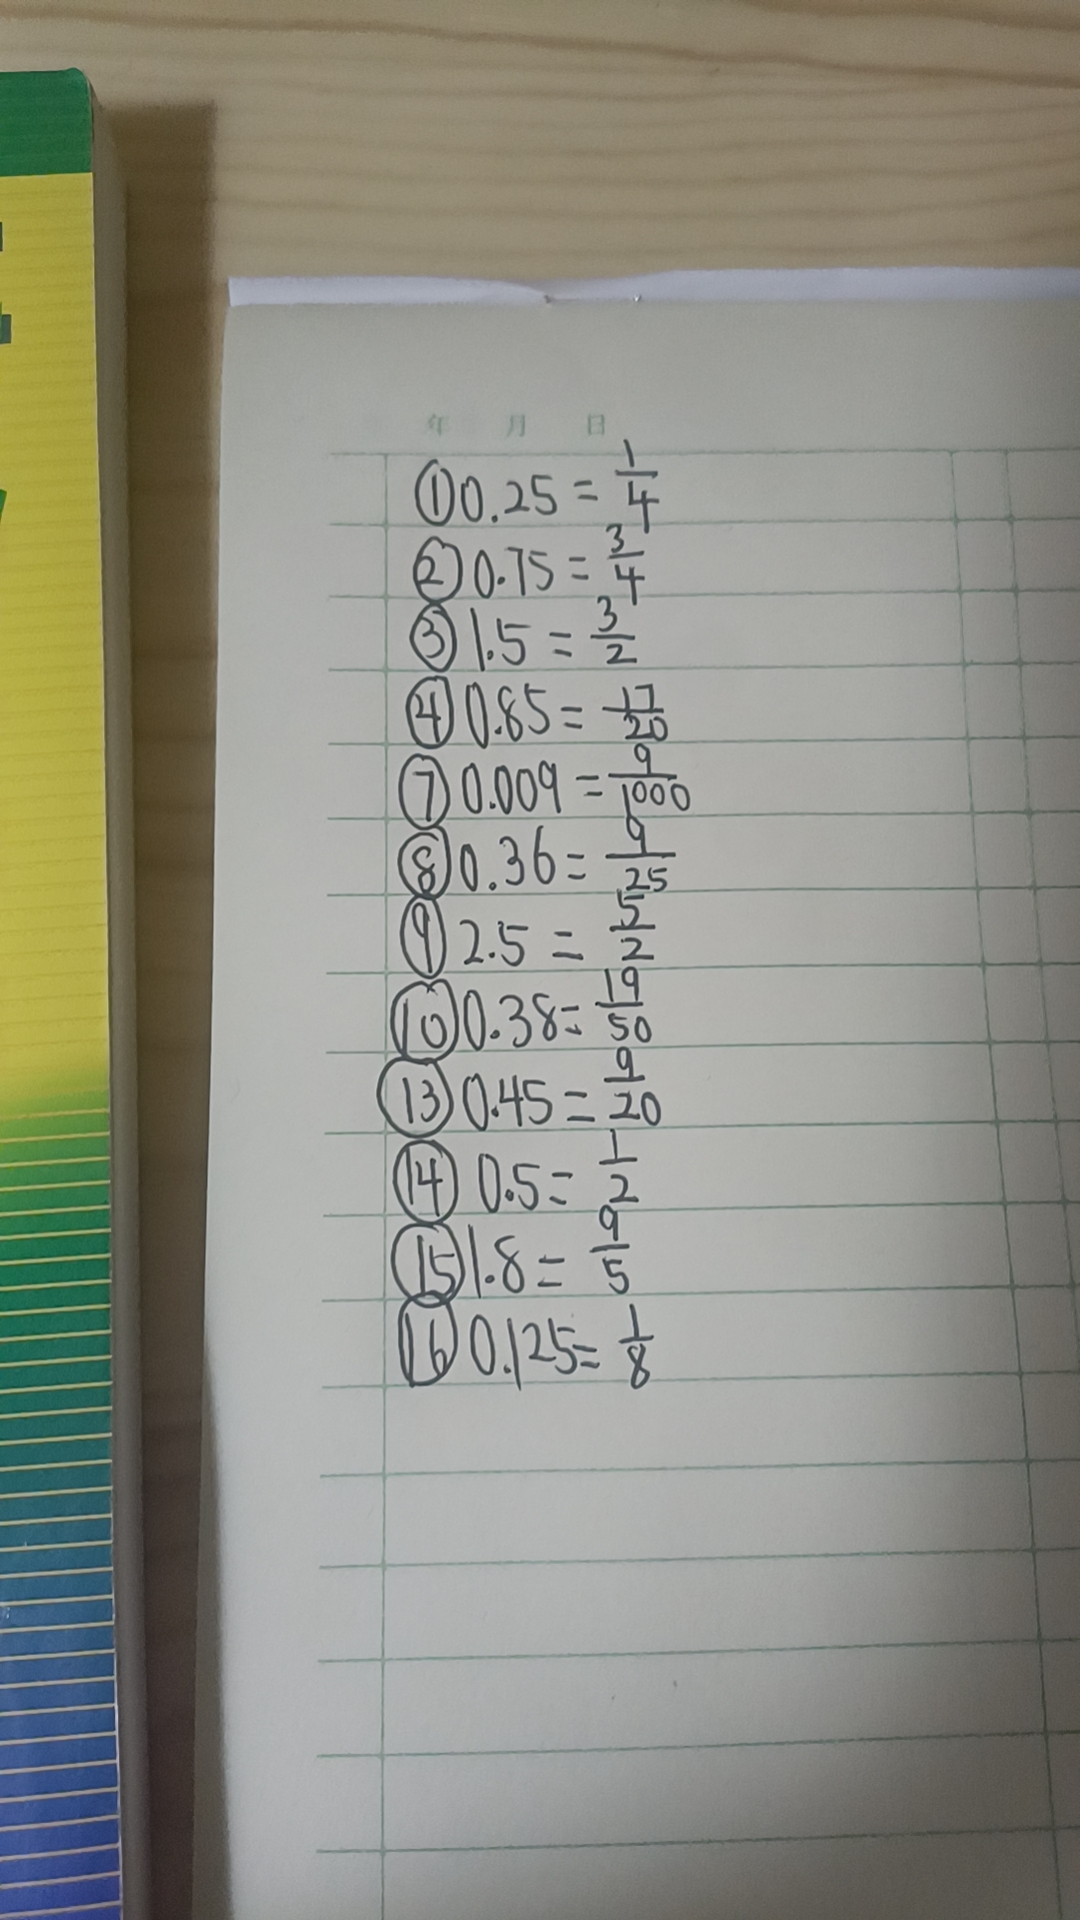 年 月 日
①0.25=1/4
②0.75=3/4
③1.5=3/2
④0.85=17/20
⑦0.009=9/1000
⑧0.36=9/25
⑨2.5=5/2
⑩0.38=19/50
⑬0.45=9/20
⑭0.5=1/2
⑮1.8=9/5
⑯0.125=1/8